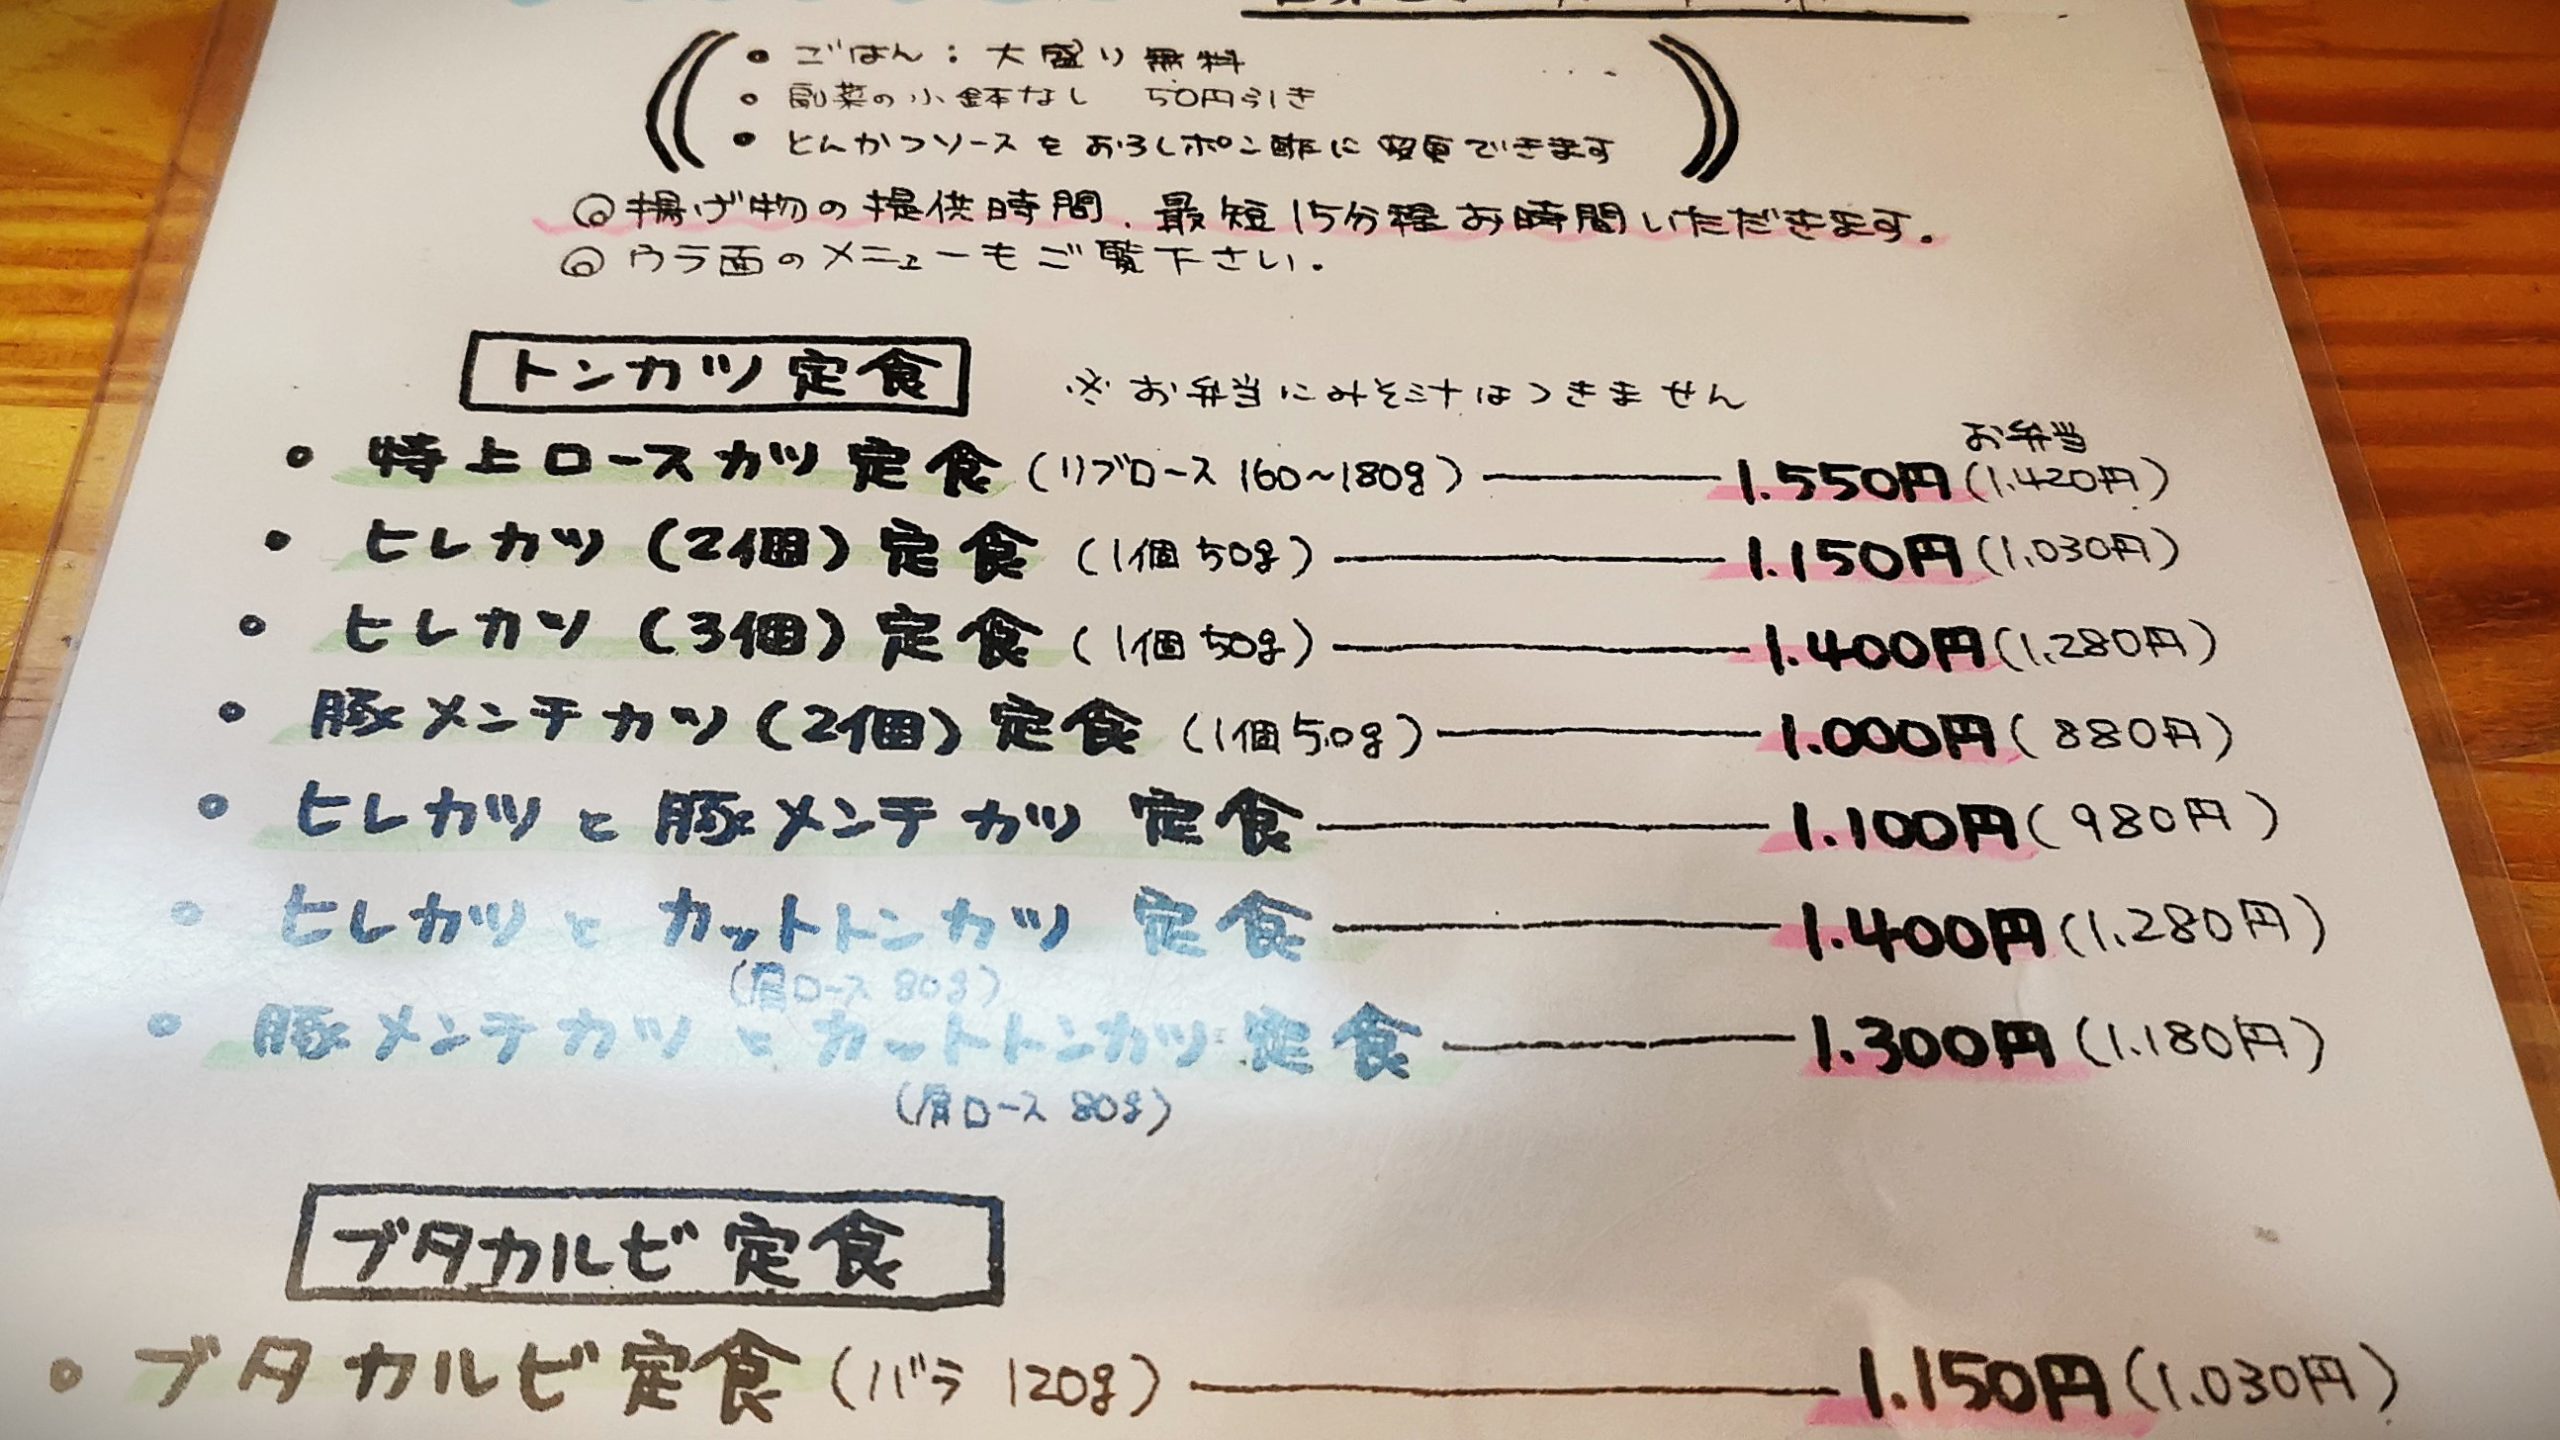 • ごはん：大盛り無料
• 副菜の小鉢なし 50円引き
• とんかつソースをおろしポン酢に変更できます
◎揚げ物の提供時間、最短15分程お時間いただきます。
◎ウラ面のメニューもご覧下さい。
トンカツ定食 ※お弁当にみそ汁はつきません
お弁当
• 特上ロースカツ定食(リブロース 160~180g) 1.550円(1.420円)
• ヒレカツ(2個)定食(1個50g) 1.150円(1.030円)
• ヒレカツ(3個)定食(1個50g) 1.400円(1.280円)
• 豚メンチカツ(2個)定食(1個50g) 1.000円(880円)
• ヒレカツと豚メンチカツ定食 1.100円(980円)
• ヒレカツとカットトンカツ定食 1.400円(1.280円)
(肩ロース 80g)
• 豚メンチカツとカットトンカツ定食 1.300円(1.180円)
(肩ロース 80g)
ブタカルビ定食
• ブタカルビ定食(バラ 120g) 1.150円(1.030円)